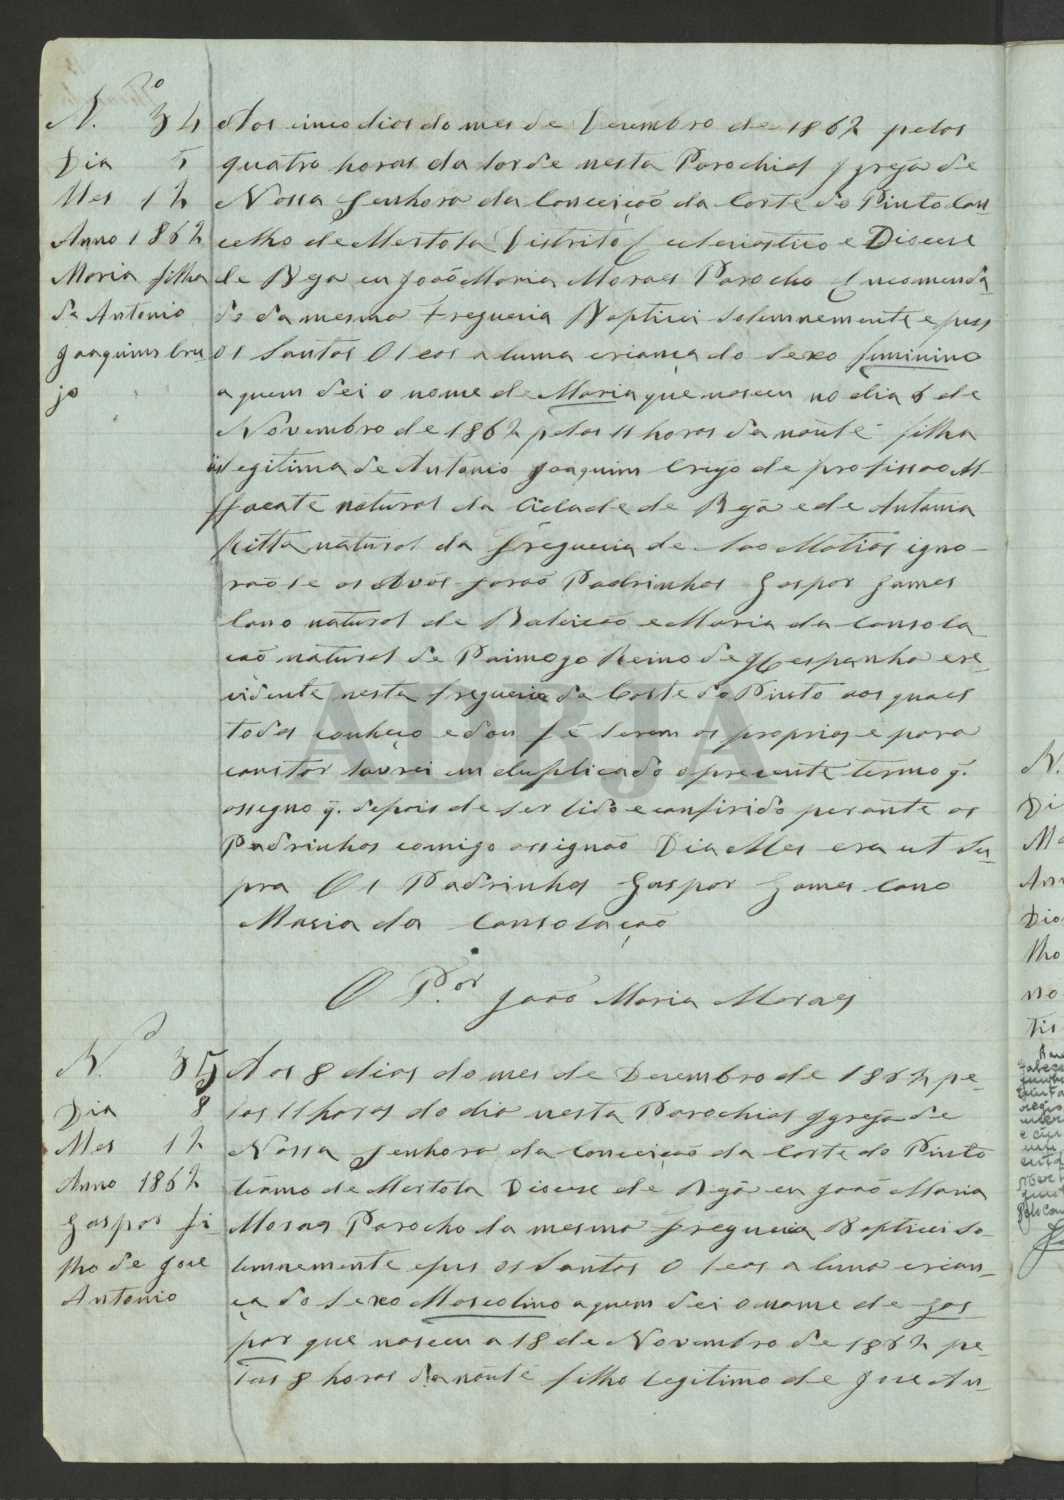 N.º 34
Dia 5
Mes 12
Anno 1862
Maria filha
de Antonio
Joaquim Cru
jo
Aos cinco dias do mes de Dezembro de 1862 pelas
quatro horas da tarde nesta Parochial Igreja de
Nossa Senhora da Conceição da Corte do Pinto Con
celho de Mertola Districto Ecclesiastico e Diocese
de Beja eu João Maria Moraes Parocho Encomenda
do da mesma Freguezia Baptizei solemnemente e pus
os Santos Oleos a huma criança do sexo feminino
a quem dei o nome de Maria que nasceu no dia 6 de
Novembro de 1862 pelas 11 horas da noute filha
legitima de Antonio Joaquim de profissao Al-
natural da Cidade de Beja e de Antonia
Ritta natural da Freguezia de Sao Matias igno-
rão se os Avós forão Padrinhos Gaspar Gomes
Cano natural de e Maria da Consola
ção natural de Paimogo Reino de Hespanha e re-
zidente nesta freguezia da Corte do Pinto aos quaes
todos conheço e dou fé serem os proprios e para
constar lavrei em duplicado o prezente termo q.
assegno q. depois de ser lido e conferido perante os
Padrinhos comigo assignão Dia Mes era ut Su-
pra Os Padrinhos Gaspar Gomes Cano
Maria da Consolação
O P.or João Maria Moraes
N.º 35
Dia 8
Mes 12
Anno 1862
Gaspar fi
lho de Joze
Antonio
Aos 8 dias do mes de Dezembro de 1862 pe-
las 11 horas do dia nesta Parochial Igreja de
Nossa Senhora da Conceição da Corte do Pinto
termo de Mertola Diocese de Beja eu João Maria
Moraes Parocho da mesma freguezia Baptizei so-
lemnemente e pus os Santos Oleos a huma crian-
ça do sexo Mascolino a quem dei o nome de Gas
par que nasceu a 18 de Novembro de 1862 pe-
las 8 horas da noute filho legitimo de Joze An-
ADBJA
N.
Di
Me
Ann
Dio
lho
no